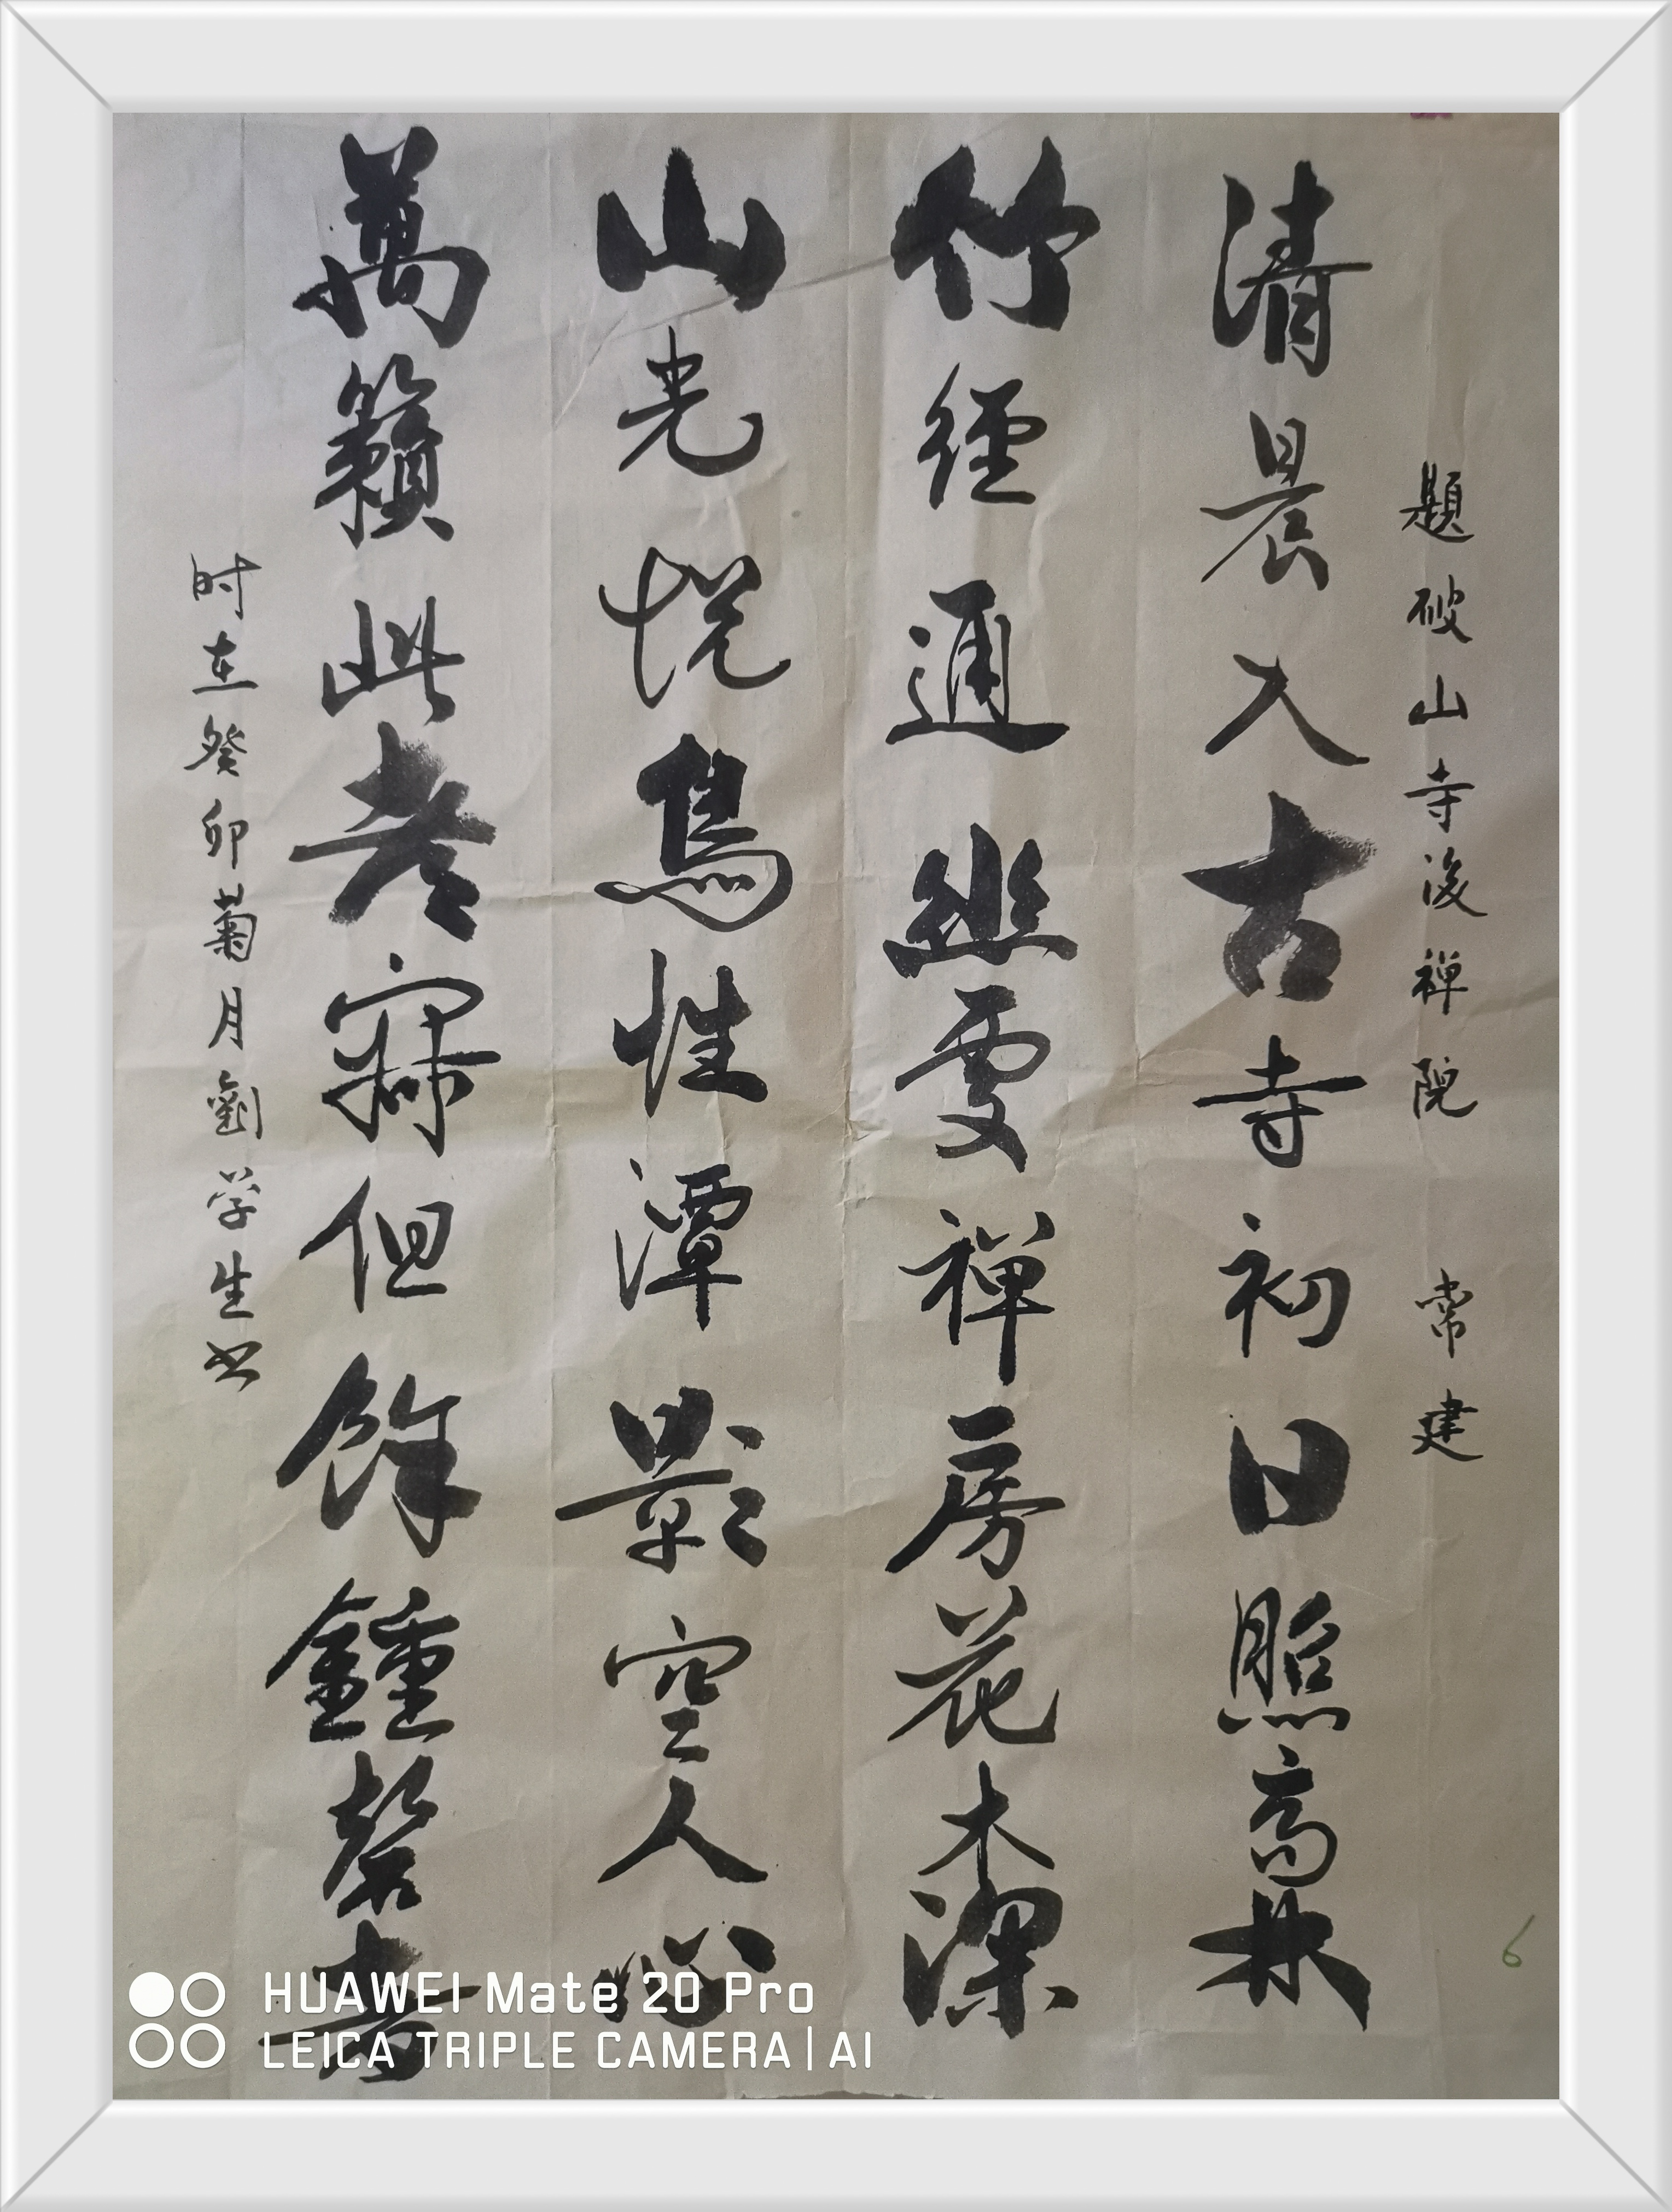 題破山寺後禅院 常建
清晨入古寺初日照高林
竹徑通幽處禅房花木深
山光悦鳥性潭影空人心
萬籟此考寂但餘鍾磬音
时在癸卯菊月劉学生书
6
HUAWEI Mate 20 Pro
LEICA TRIPLE CAMERA | AI